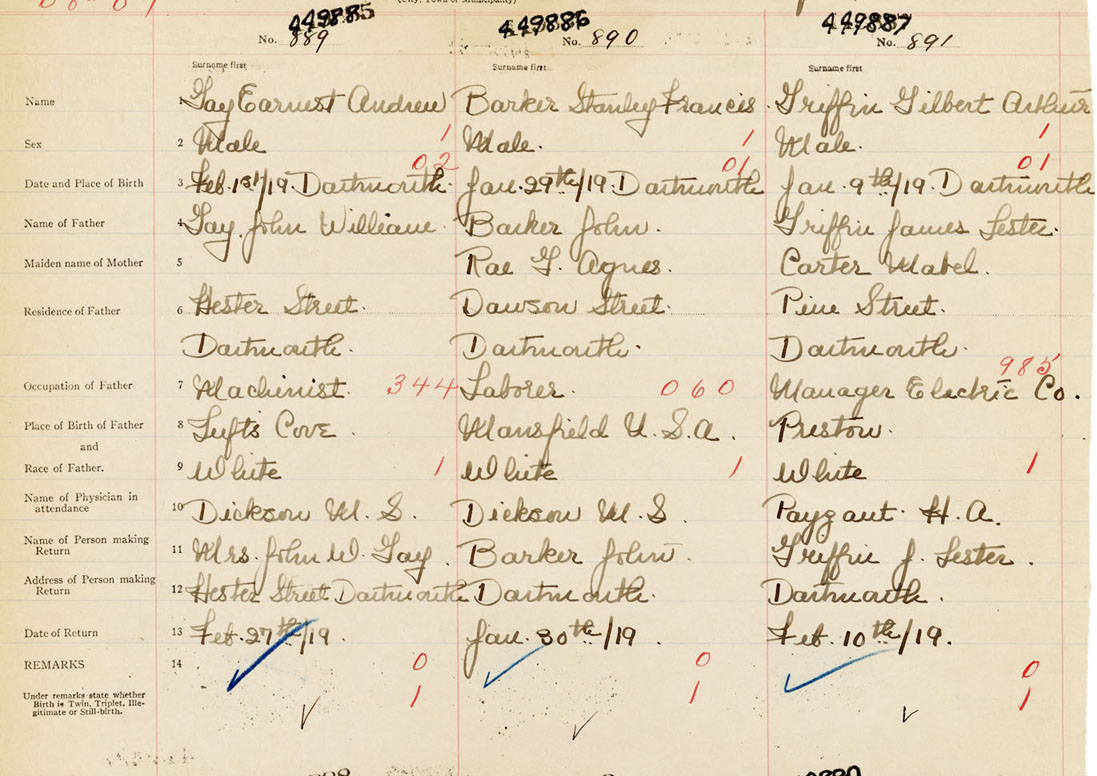 (City, Town or Municipality)
449885 449886 449887
No. 889 No. 890 No. 891
Surname first Surname first Surname first
Name 1 Gay Earnest Andrew Barker Stanley Francis Griffin Gilbert Arthur
Sex 2 Male 1 Male. 1 Male. 1
02 01 01
Date and Place of Birth 3 Feb. 1st/19. Dartmouth. Jan. 29th/19. Dartmouth Jan. 9th/19. Dartmouth
Name of Father 4 Gay John William. Barker John. Griffin James Lester.
Maiden name of Mother 5 Rae G. Agnes. Carter Mabel.
Residence of Father 6 Hester Street. Dawson Street. Pine Street.
Dartmouth. Dartmouth. Dartmouth.
985
Occupation of Father 7 Machinist. 344 Laborer. 060 Manager Electric Co.
Place of Birth of Father 8 Tufts Cove. Mansfield U.S.A. Preston.
and
Race of Father. 9 White 1 White 1 White 1
Name of Physician in
attendance 10 Dickson M. S. Dickson M. S. Payzant. H. A.
Name of Person making
Return 11 Mrs. John W. Gay. Barker John. Griffin J. Lester.
Address of Person making
Return 12 Hester Street Dartmouth Dartmouth. Dartmouth.
Date of Return 13 Feb. 27th/19. Jan. 30th/19. Feb. 10th/19.
REMARKS 14 0 0 0
Under remarks state whether 1 1 1
Birth is Twin, Triplet, Ille-
gitimate or Still-birth.